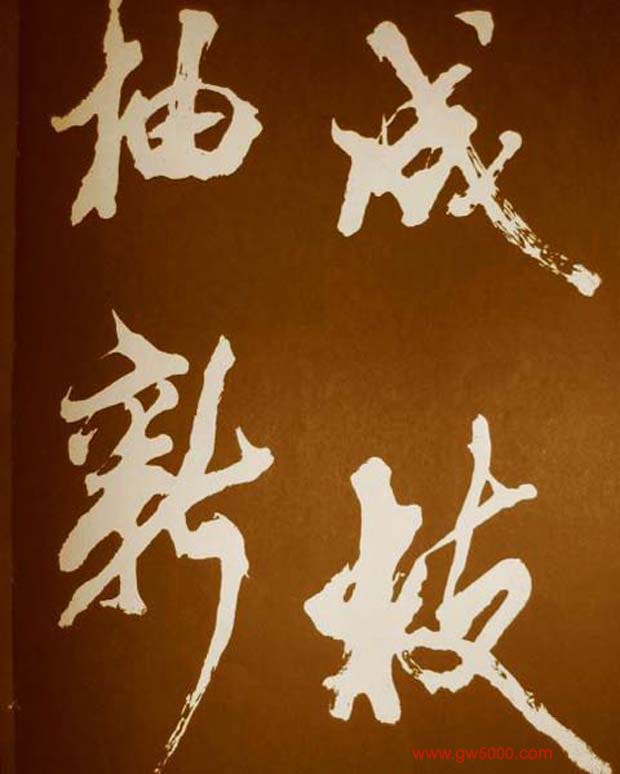 成枝
抽新
www.gw5000.com